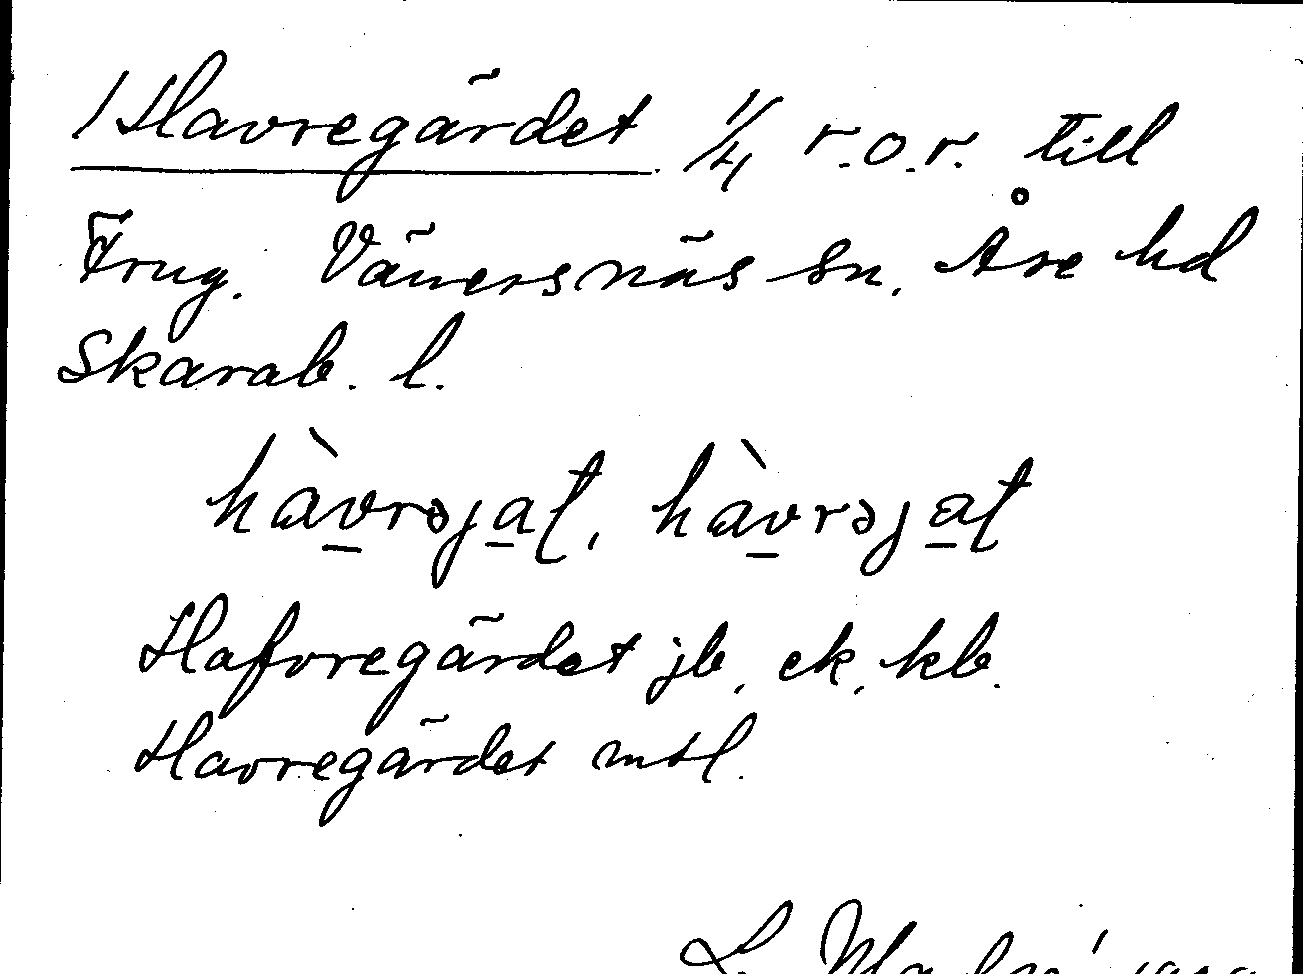 /Havregärdet 1/4 r.o.r. till
Frug. Vänersnäs sn, Åse hd
Skarab. l.
hàvrəjat, hàvrəjat
Hafvregärdet jb, ek, kb.
Havregärdet mtl.
L.